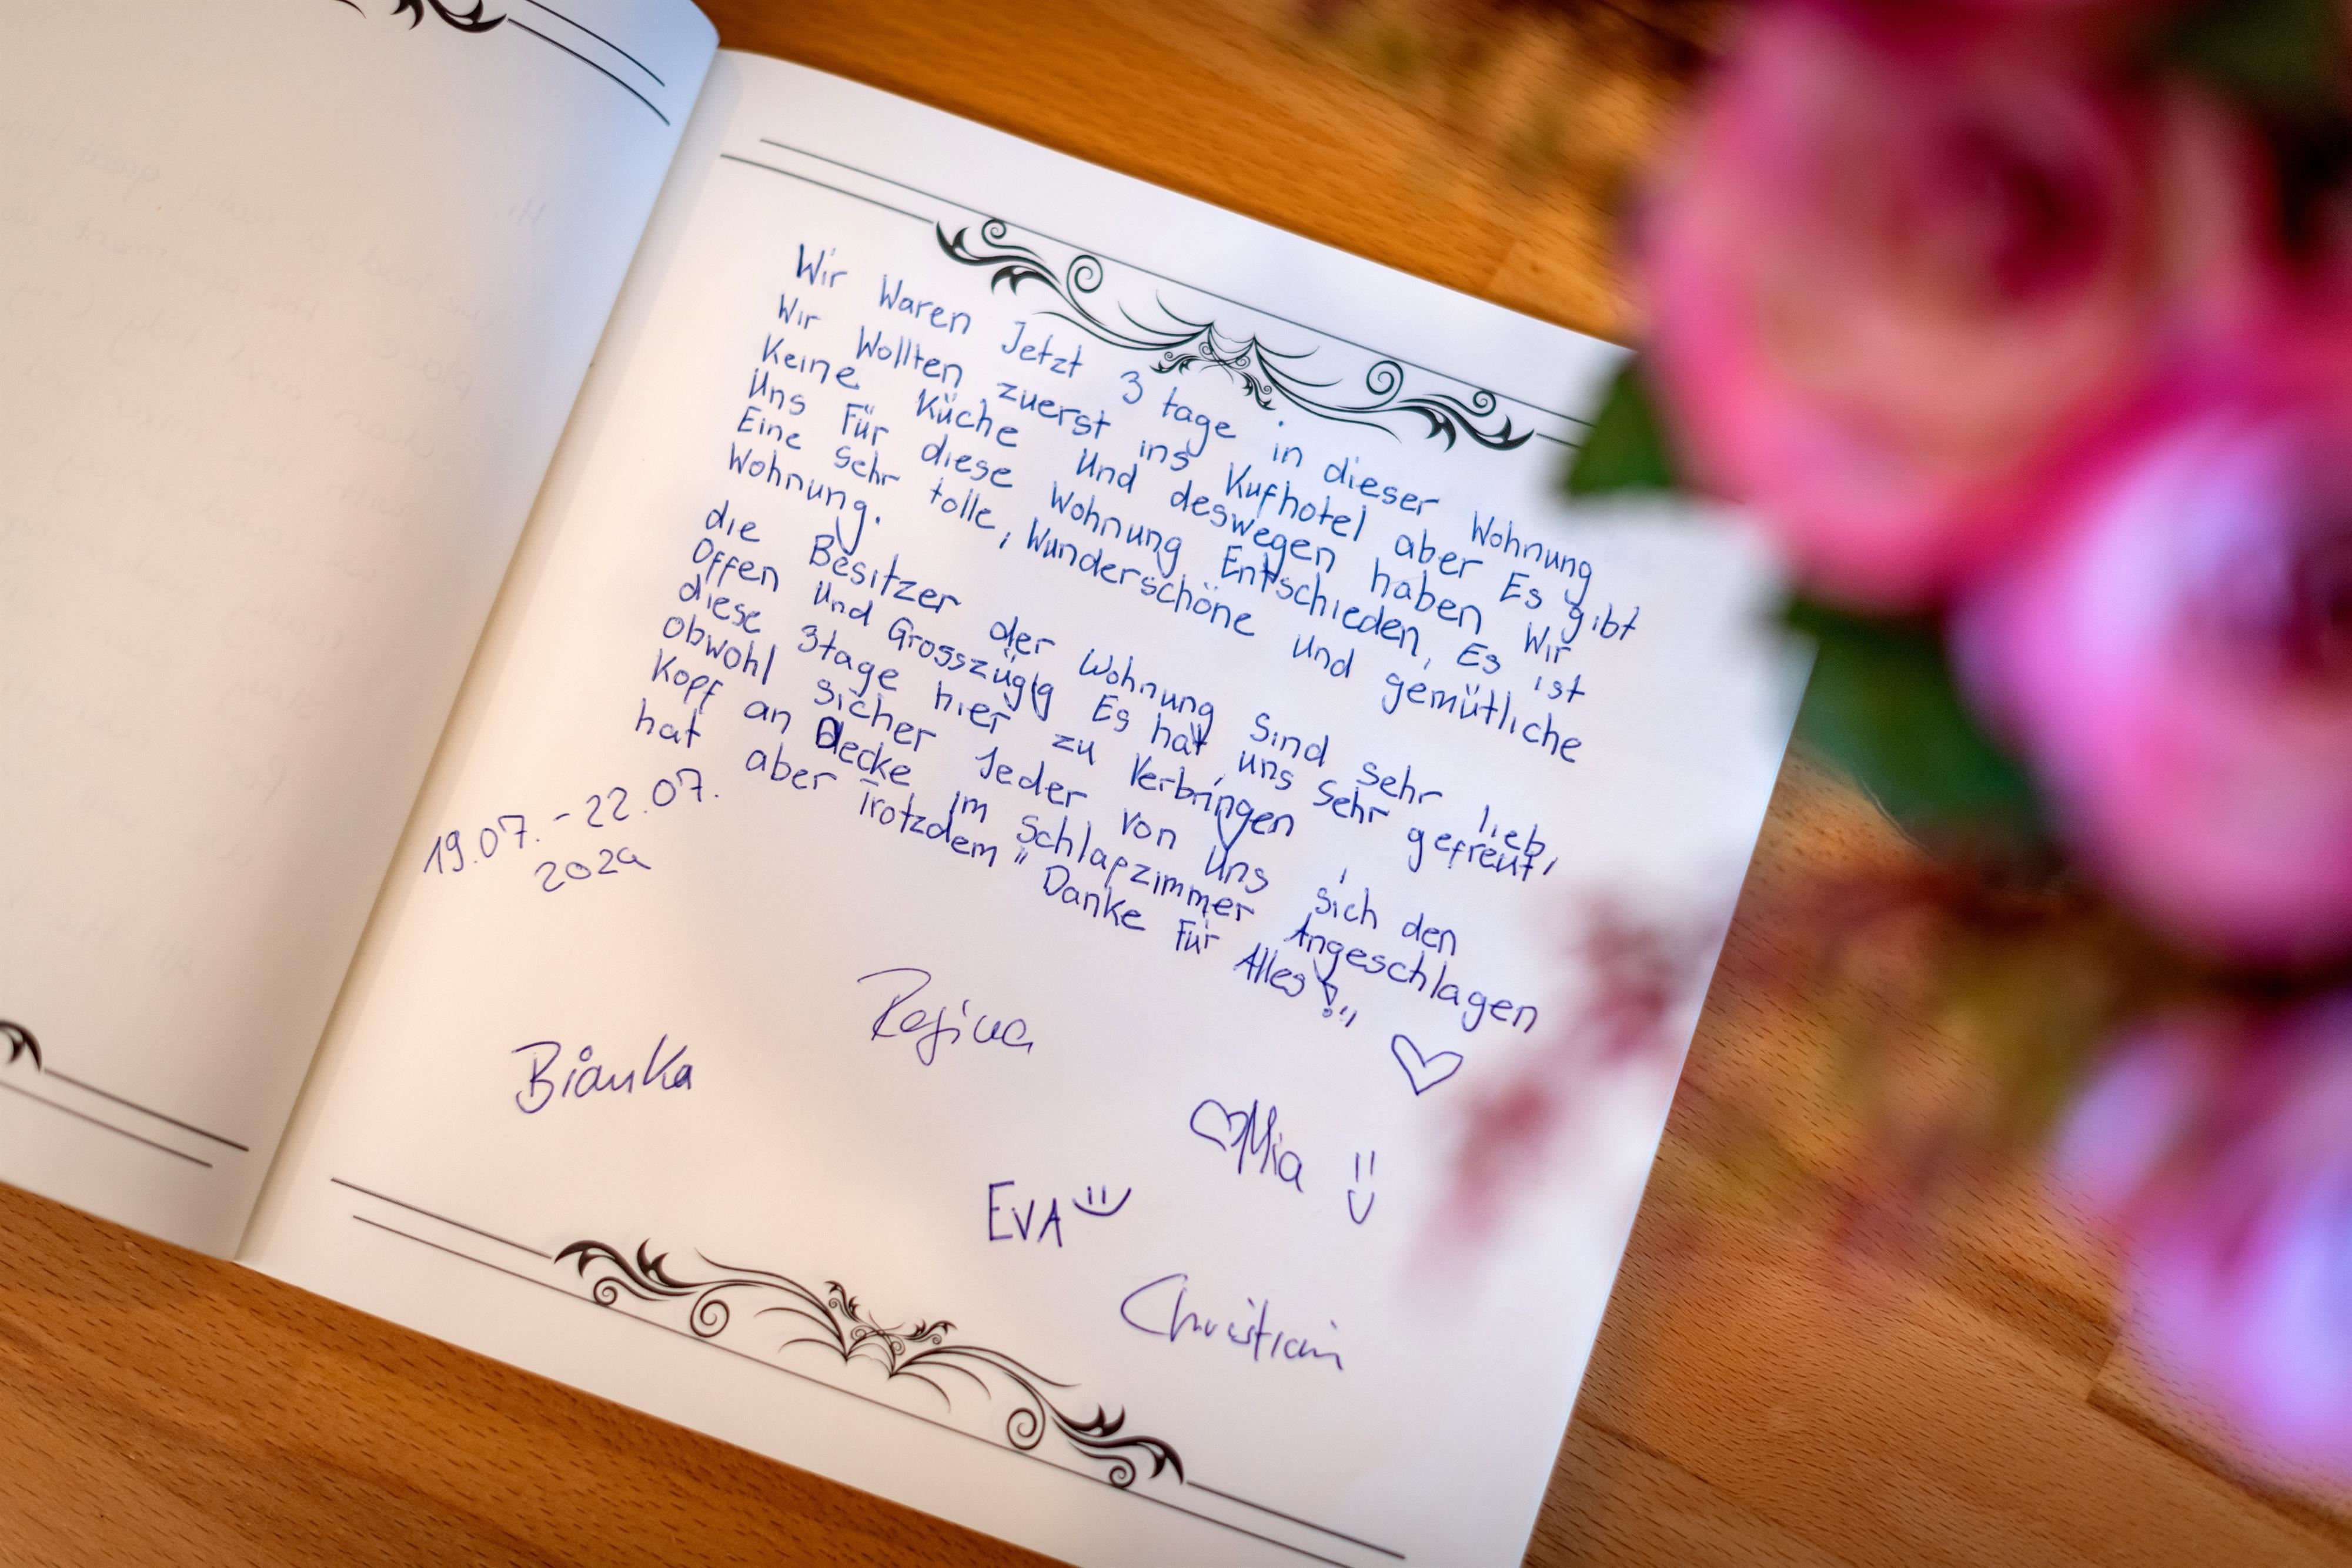 Wir Waren Jetzt 3 tage in dieser Wohnung
Wir Wollten zuerst ins Kufhotel aber Es gibt
Keine Küche Und deswegen haben Wir
Uns Für diese Wohnung Entschieden, Es ist
Eine Sehr tolle, Wunderschöne und gemütliche
Wohnung.
die Besitzer der Wohnung Sind Sehr lieb,
Offen Und Grosszügig Es hat uns Sehr gefreut,
diese 3tage hier zu Verbringen,
obwohl Sicher Jeder von Uns Sich den
Kopf an Decke im Schlafzimmer Angeschlagen
hat aber Trotzdem "Danke Für Alles!"
19.07.-22.07.
2024
Regina
Bianka
Mia
EVA
Christian